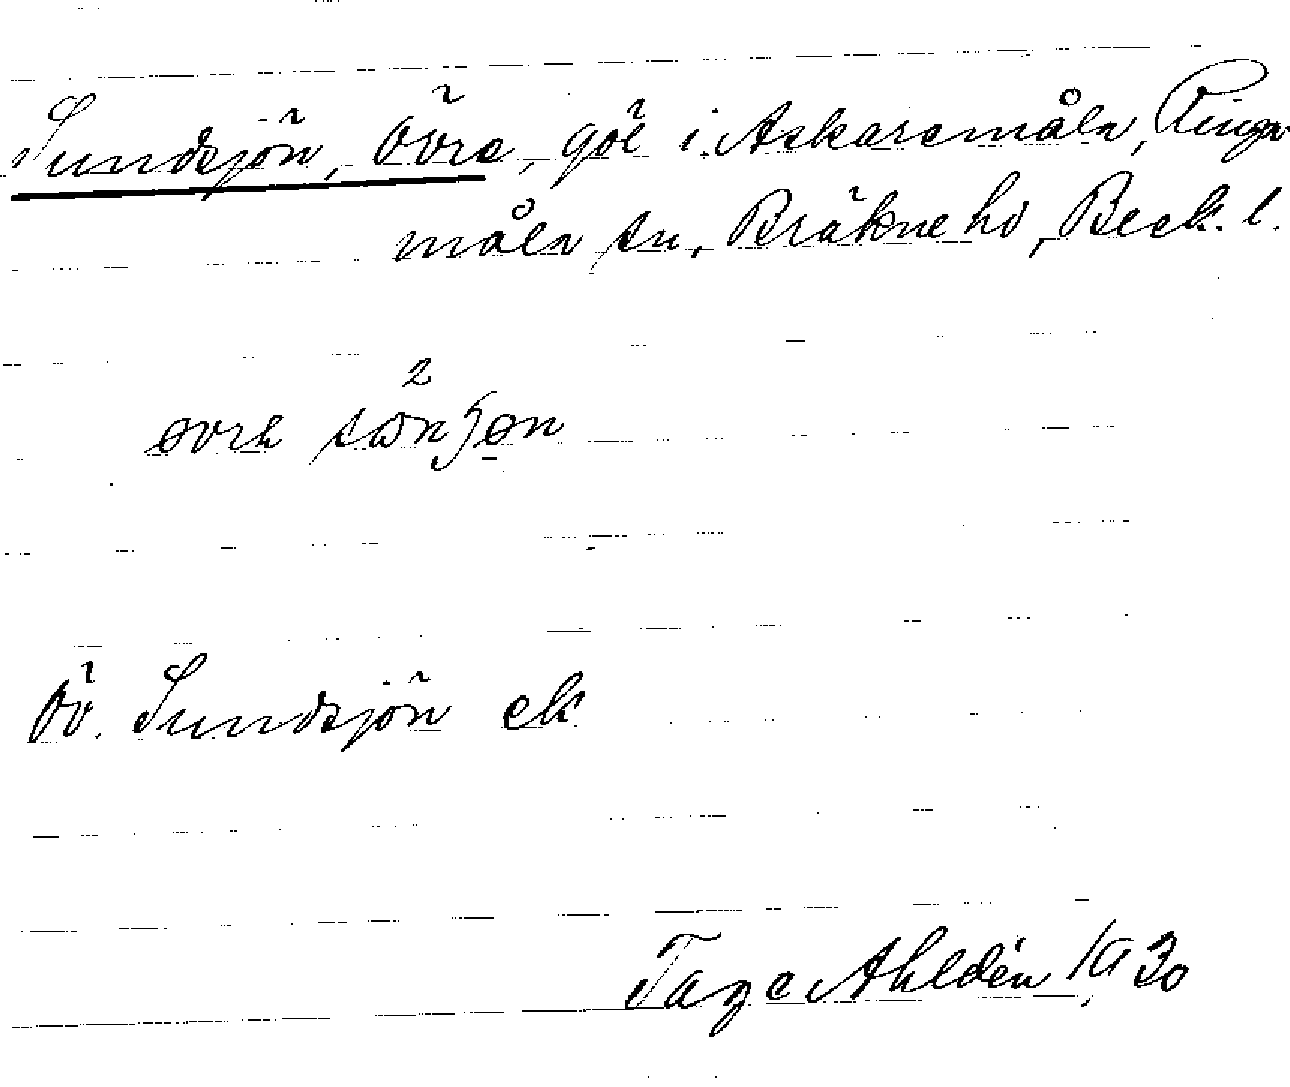 Sundsjön, Övre, göl i Askaremåla, Ringa
måla sn, Bräkne hd, Blek. l.
2
øvrɛ
Öv. Sundsjön ek
Tage Ahldén 1930